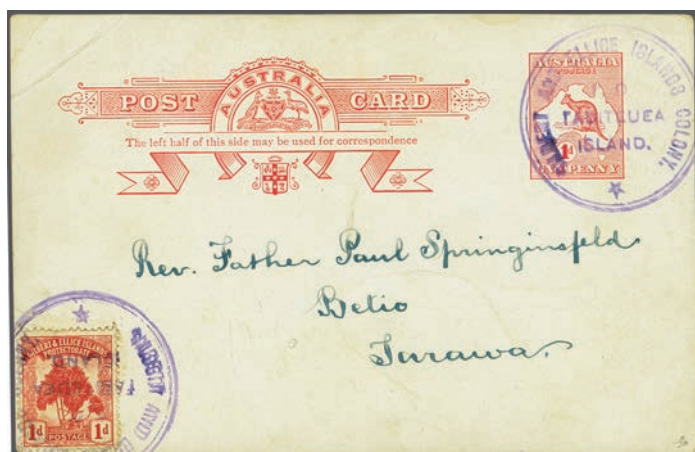 POST AUSTRALIA CARD
The left half of this side may be used for correspondence
AUSTRALIA
POSTAGE
1d
ONE PENNY
ELLICE ISLANDS COLONY.
TABITEUEA
ISLAND.
Rev. Father Paul Springinsfeld
Betio
Tarawa.
GILBERT & ELLICE ISLANDS
PROTECTORATE
1d POSTAGE 1d